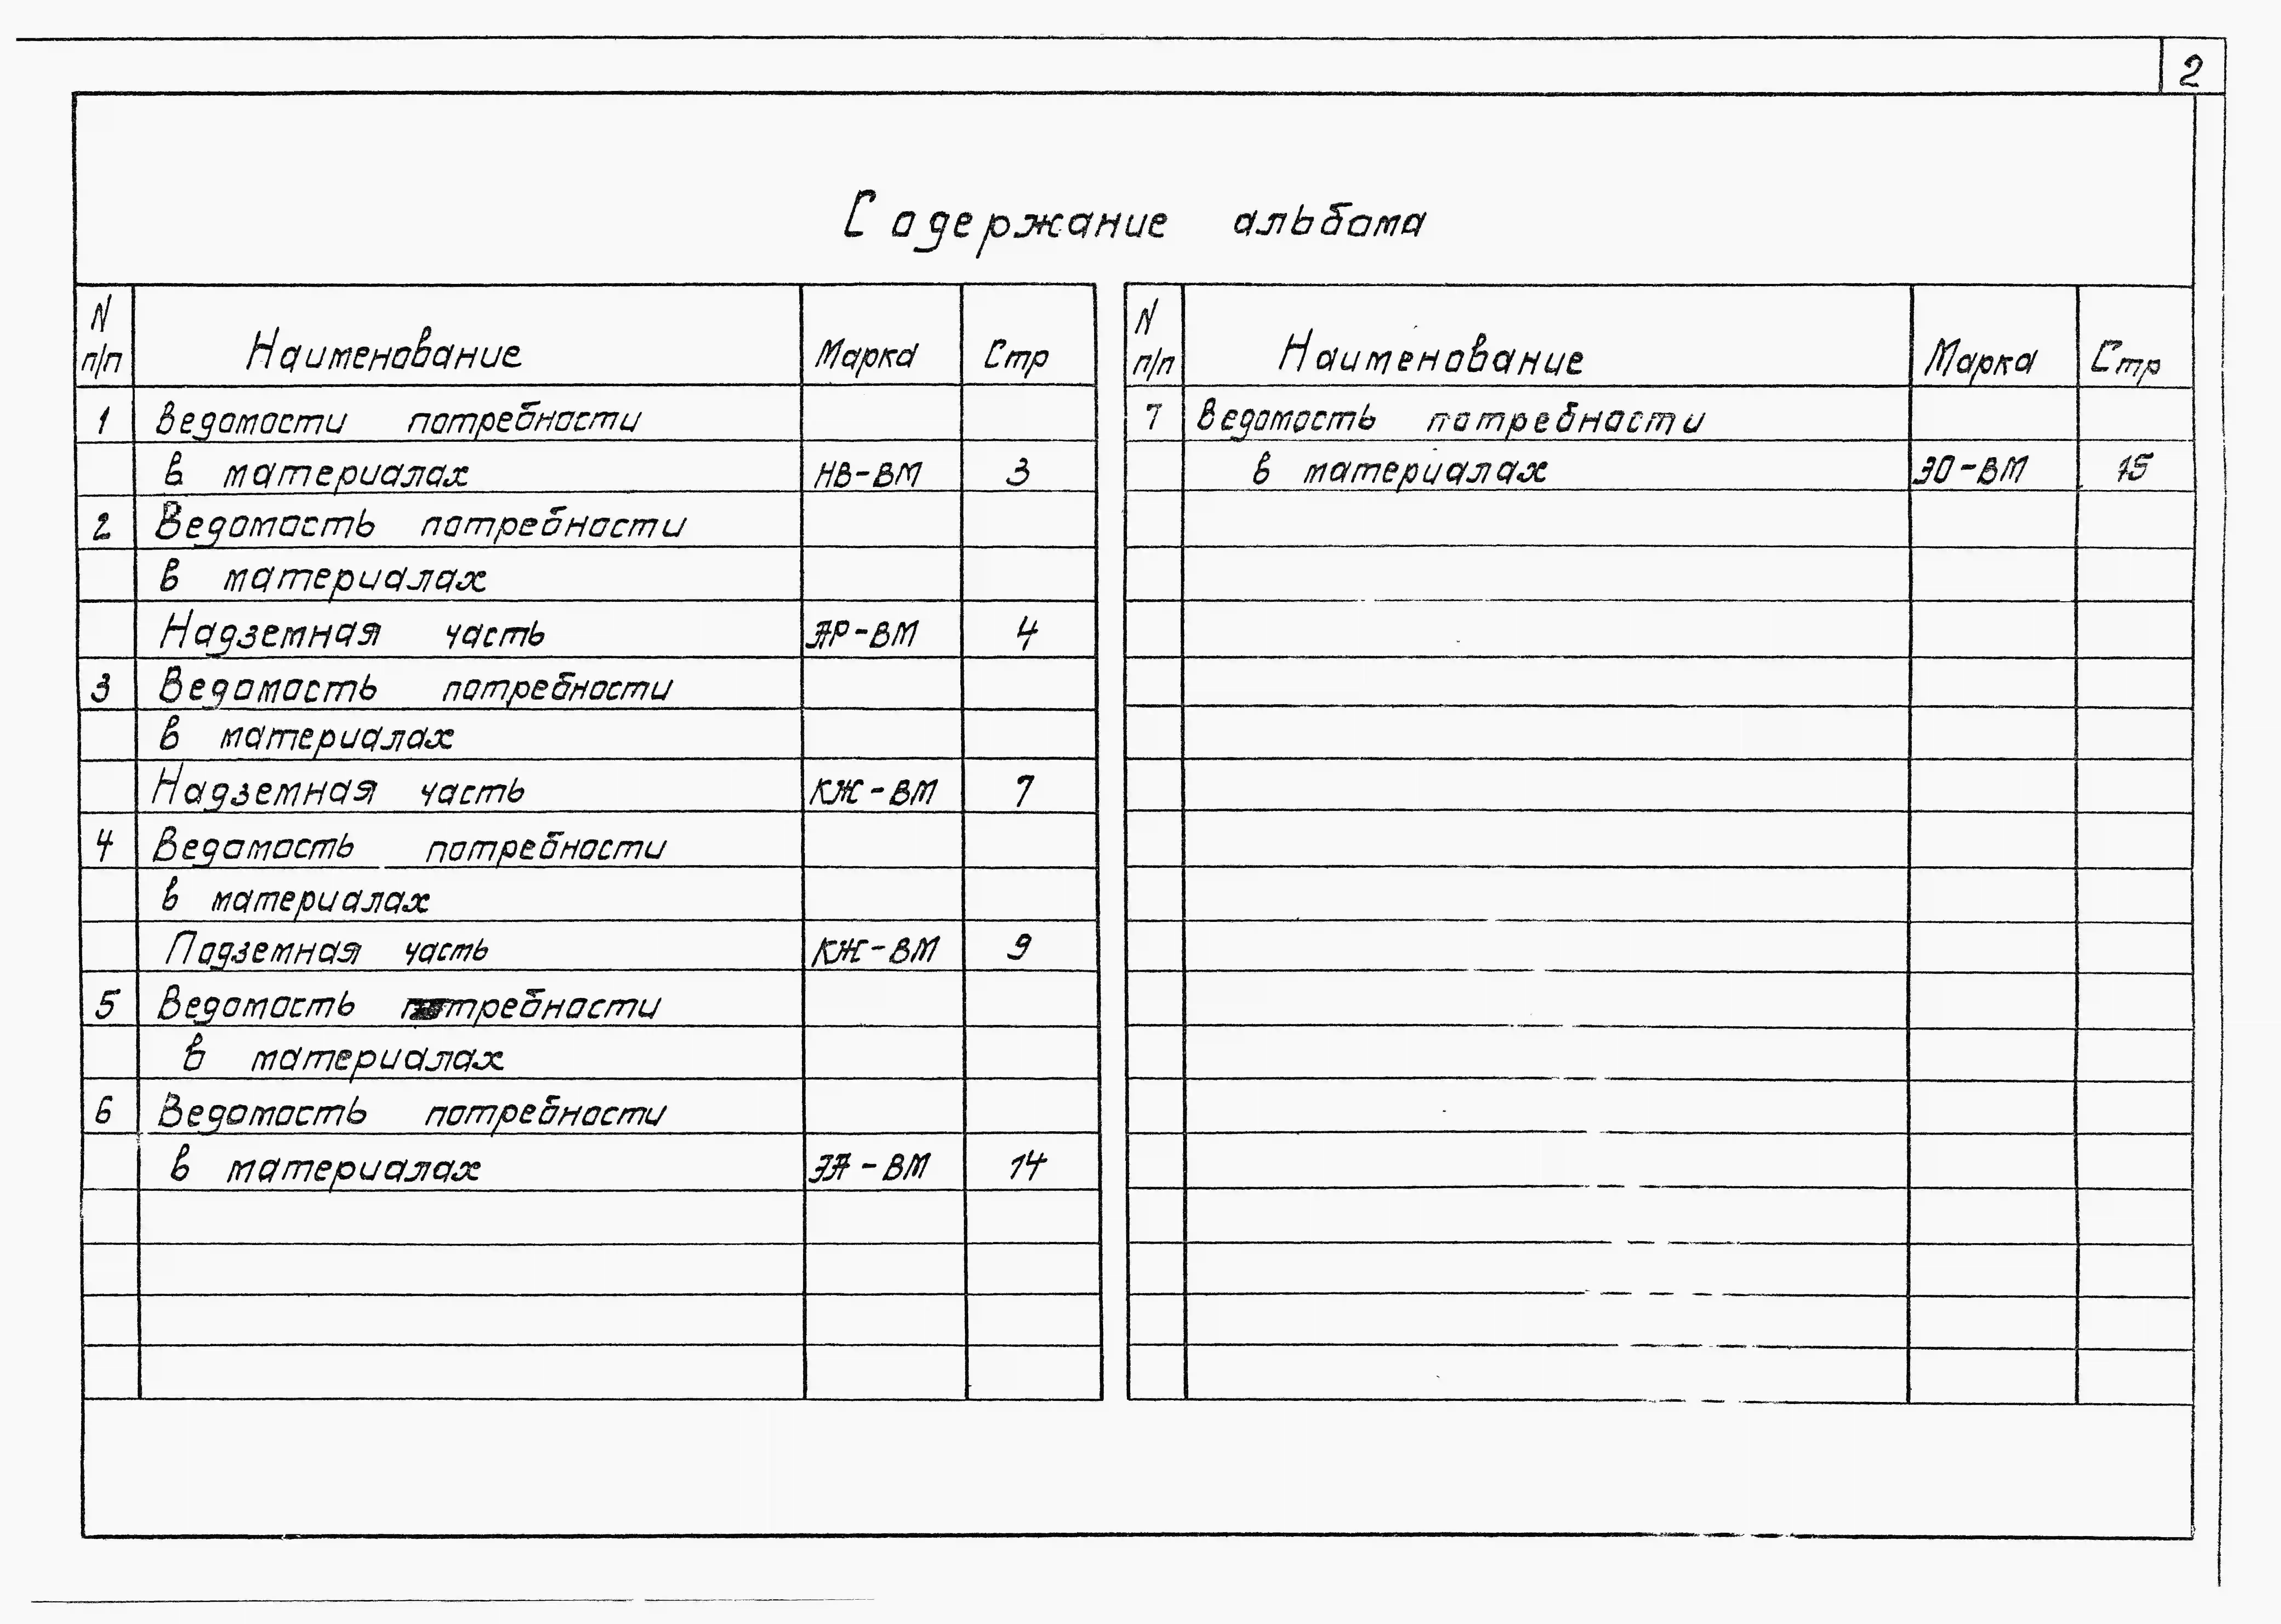 2
Содержание альбома
N п/п Наименование Марка Стр
1 Ведомости потребности
в материалах НВ-ВМ 3
2 Ведомость потребности
в материалах
Надземная часть АР-ВМ 4
3 Ведомость потребности
в материалах
Надземная часть КЖ-ВМ 7
4 Ведомость потребности
в материалах
Подземная часть КЖ-ВМ 9
5 Ведомость потребности
в материалах
6 Ведомость потребности
в материалах ЭА-ВМ 14
N п/п Наименование Марка Стр
7 Ведомость потребности
в материалах ЭО-ВМ 15